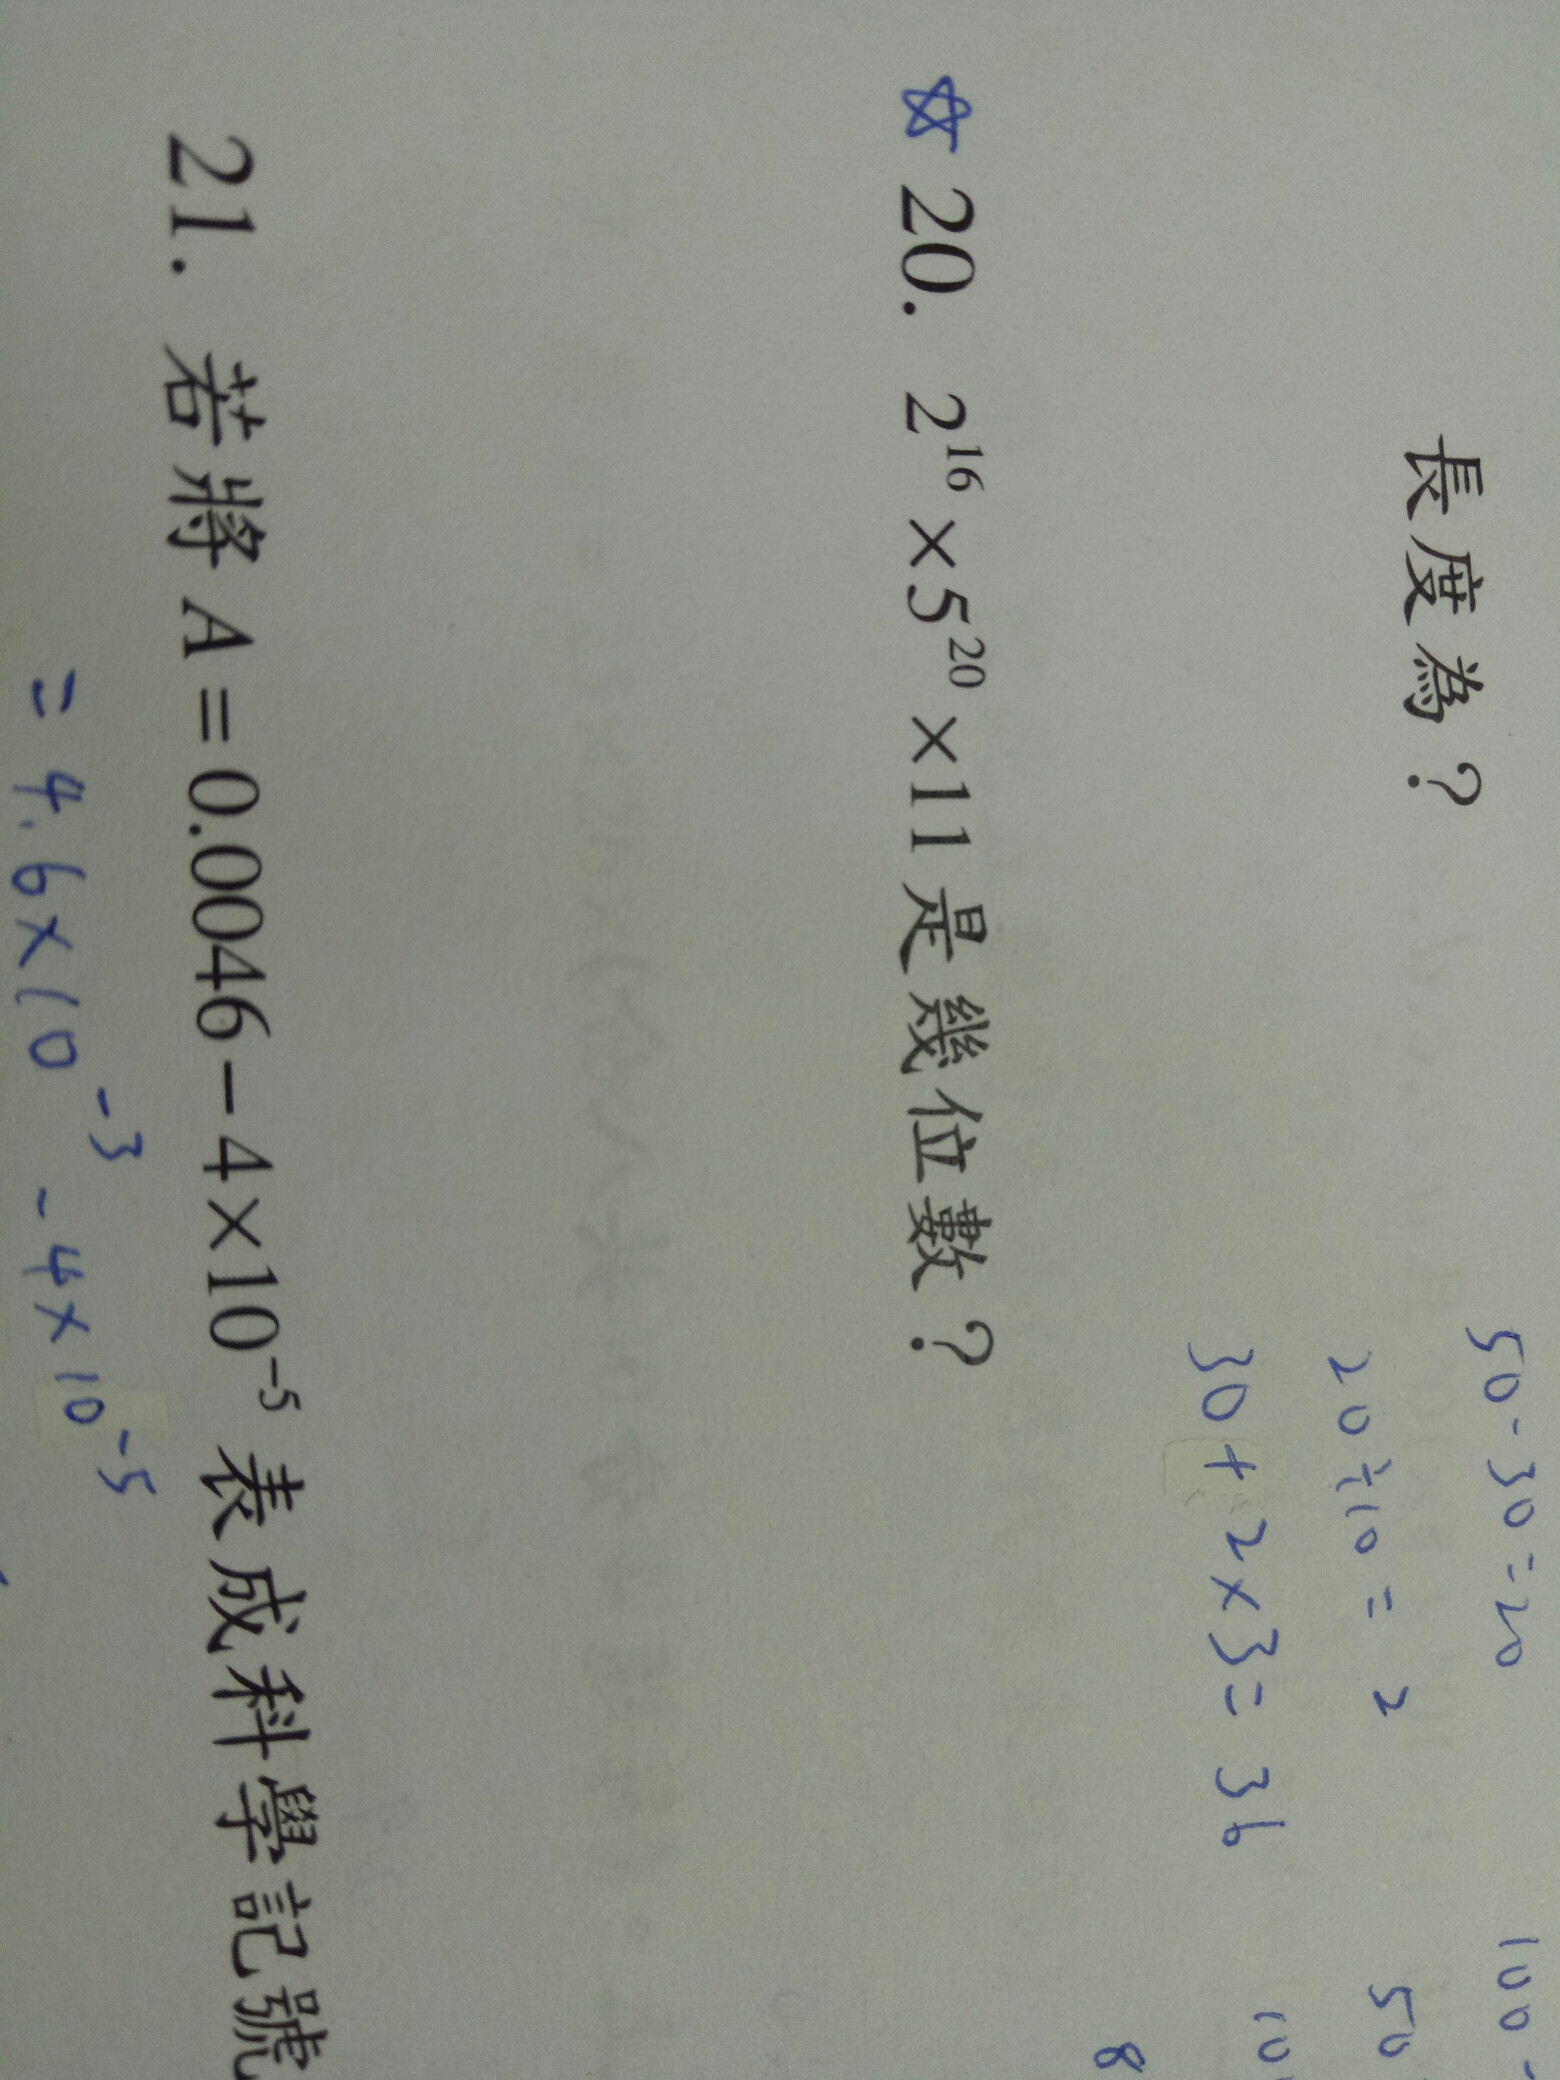 長度為？
50-30=20
100-
20÷10=2
50
30+2×3=36
10
8
☆ 20. 2¹⁶×5²⁰×11是幾位數？
21. 若將A=0.0046-4×10⁻⁵表成科學記號
=4.6×10⁻³-4×10⁻⁵